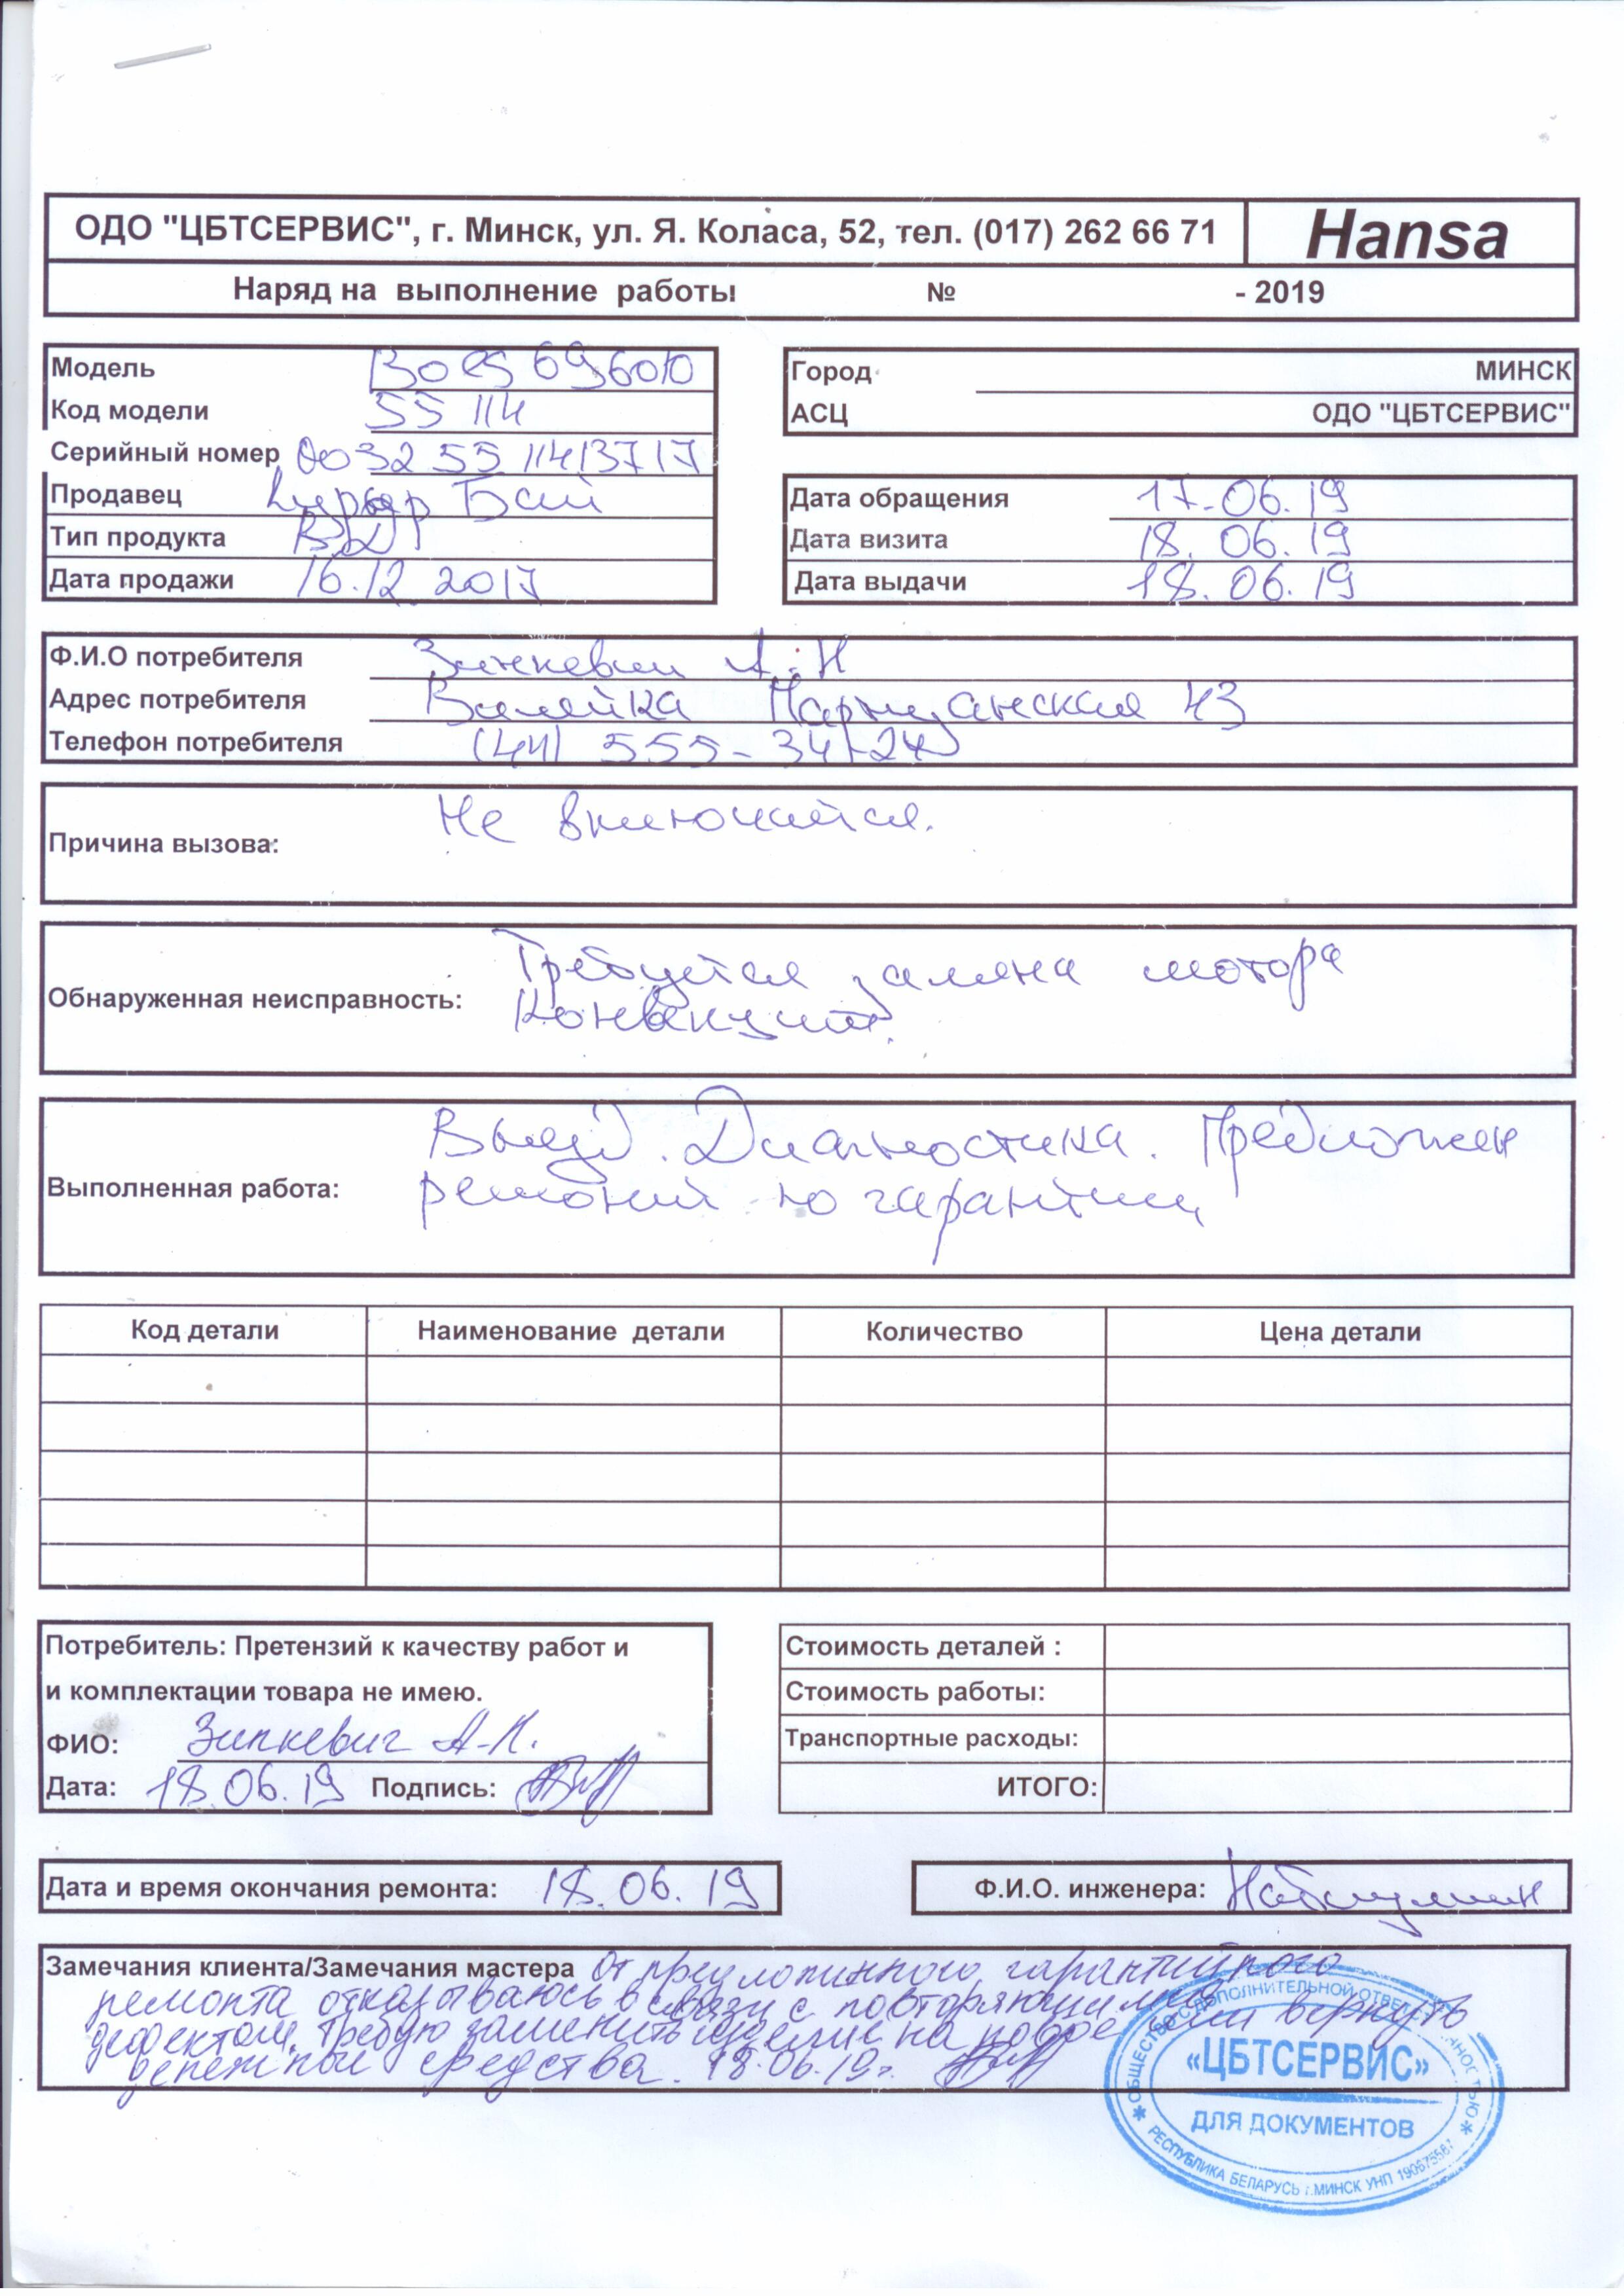 ОДО "ЦБТСЕРВИС", г. Минск, ул. Я. Коласа, 52, тел. (017) 262 66 71
Hansa
Наряд на выполнение работы № - 2019
Модель
Код модели 55 114
Серийный номер 003255 11413717
Продавец Бай
Тип продукта
Дата продажи 16.12.2017
Город МИНСК
АСЦ ОДО "ЦБТСЕРВИС"
Дата обращения 17.06.19
Дата визита 18.06.19
Дата выдачи 18.06.19
Ф.И.О потребителя Зинкевич А.Н
Адрес потребителя Вилейка Партизанская 43
Телефон потребителя (44) 555-34-24
Причина вызова: Не включается.
Обнаруженная неисправность: Требуется замена мотора
конвекции.
Выполненная работа: Выезд. Диагностика. Предложен
ремонт по гарантии
Код детали Наименование детали Количество Цена детали
Потребитель: Претензий к качеству работ и
и комплектации товара не имею.
ФИО: Зинкевич А.Н.
Дата: 18.06.19 Подпись:
Стоимость деталей :
Стоимость работы:
Транспортные расходы:
ИТОГО:
Дата и время окончания ремонта: 18.06.19
Ф.И.О. инженера:
Замечания клиента/Замечания мастера От предложинного гарантийного
ремонта отказываюсь в связи с повторяющимся
дефектом. Требую заменить изделие на новое или вернуть
денежные средства. 18.06.19г.
ОБЩЕСТВО С ДОПОЛНИТЕЛЬНОЙ ОТВЕТСТВЕННОСТЬЮ
«ЦБТСЕРВИС»
ДЛЯ ДОКУМЕНТОВ
РЕСПУБЛИКА БЕЛАРУСЬ г.МИНСК УНП 190675567